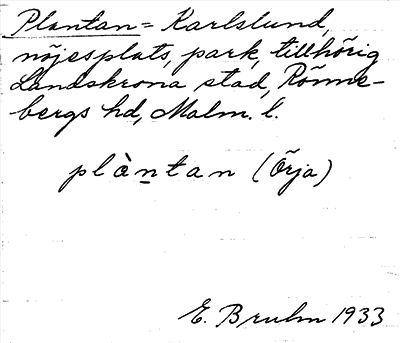 Plantan = Karlslund,
nöjesplats, park, tillhörig
Landskrona stad, Rönne-
bergs hd, Malm. l.
plàn̲tan (Örja)
E. Bruhn 1933